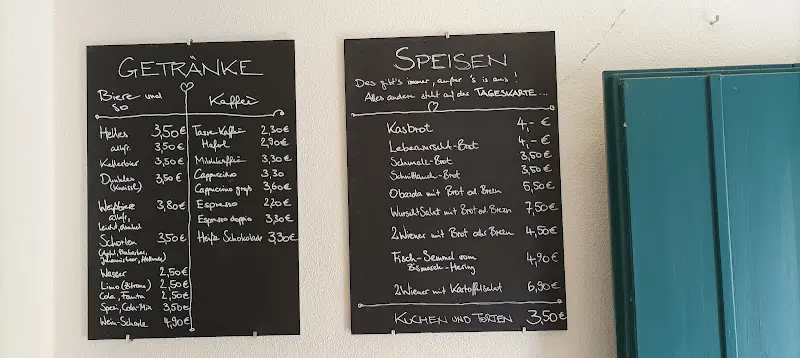 GETRÄNKE
Biere und so
Helles 3,50€
alkfr. 3,50€
Kellerbier 3,50€
Dunkles 3,50€
(Kneissl)
Weißbier 3,80€
alkfr.,
leicht, dunkel
Schorlen 3,50€
(Apfel, Rhabarber,
Johannisbeer, Holunder)
Wasser 2,50€
Limo (Zitrone) 2,50€
Cola, Fanta 2,50€
Spezi, Cola-Mix 3,50€
Wein-Schorle 4,90€
Kaffee
Tasse Kaffee 2,30€
Haferl 2,90€
Milchkaffee 3,30€
Cappuccino 3,30
Cappuccino groß 3,60€
Espresso 2,20€
Espresso doppio 3,30€
Heiße Schokolade 3,30€
SPEISEN
Des gibt's immer, außer 's is aus!
Alles andere steht auf der TAGESKARTE...
Kasbrot 4,-€
Leberwurscht-Brot 4,-€
Schmalz-Brot 3,50€
Schnittlauch-Brot 3,50€
Obazda mit Brot od. Brezn 5,50€
WurschtSalat mit Brot od. Brezn 7,50€
2 Wiener mit Brot oder Brezn 4,50€
Fisch-Semmel vom 4,90€
Bismarck-Hering
2 Wiener mit Kartoffelsalat 6,90€
KUCHEN UND TORTEN 3,50€